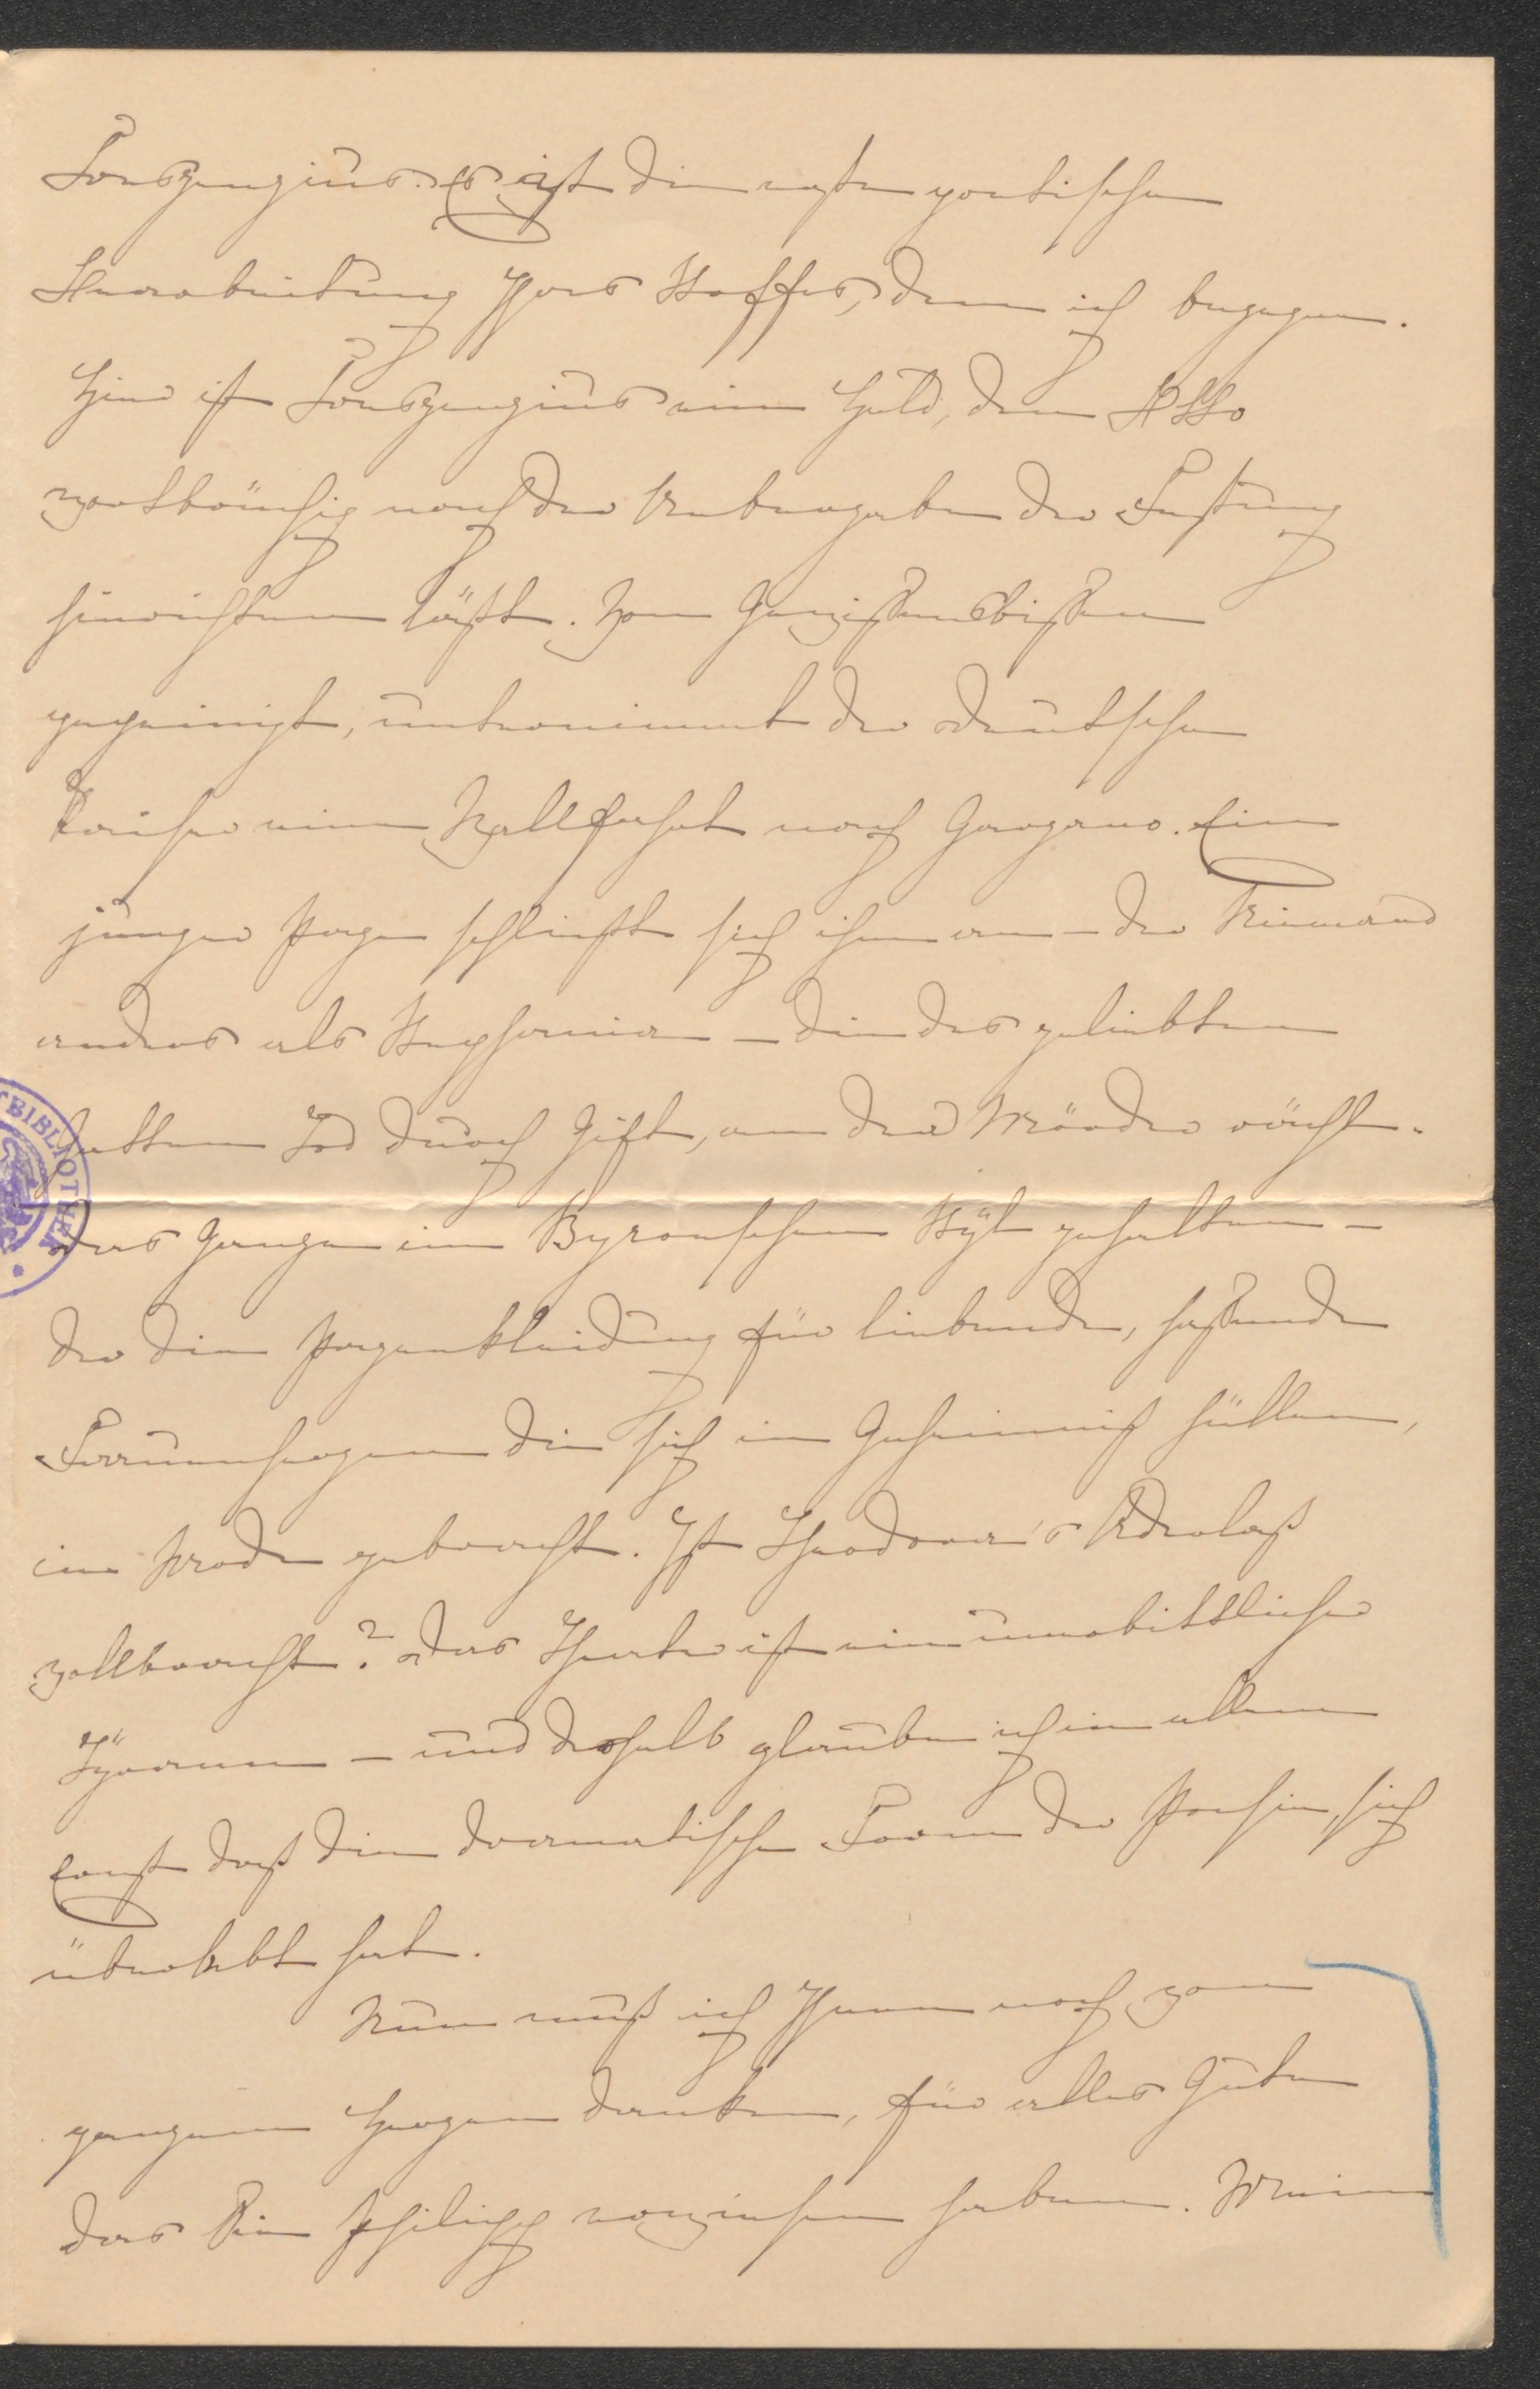 Creszenzius. Es ist die erste poetische
Verarbeitung Ihres Stoffes, dem ich begegne.
Hier ist Creszenzius ein Held, den Otto
wortbrüchig nach der Uebergabe der Festung
hinrichten läßt. Von Gewissensbissen
gepeinigt, unternimmt der deutsche
Kaiser eine Wallfahrt nach Gargano. Ein
junger Page schließt sich ihm an – der Niemand
andres als Stephania – die des geliebten
Gatten Tod durch Gift, an dem Mörder rächt.
Das Ganze im Byronschen Styl gehalten –
der die Pagenkleidung für liebende, hassende
Frauenherzen die sich in Geheimniß hüllen,
in Mode gebracht. Ist Theodora's Aderlaß
vollbracht? Das Theater ist ein unerbittlicher
Tyrann – und deshalb glaube ich in allem
Ernst daß die dramatische Form der Poesie, sich
überlebt hat.
Nun muß ich Ihnen noch von
ganzem Herzen danken, für alles Gute
das Sie Philipp erwiesen haben. Meine